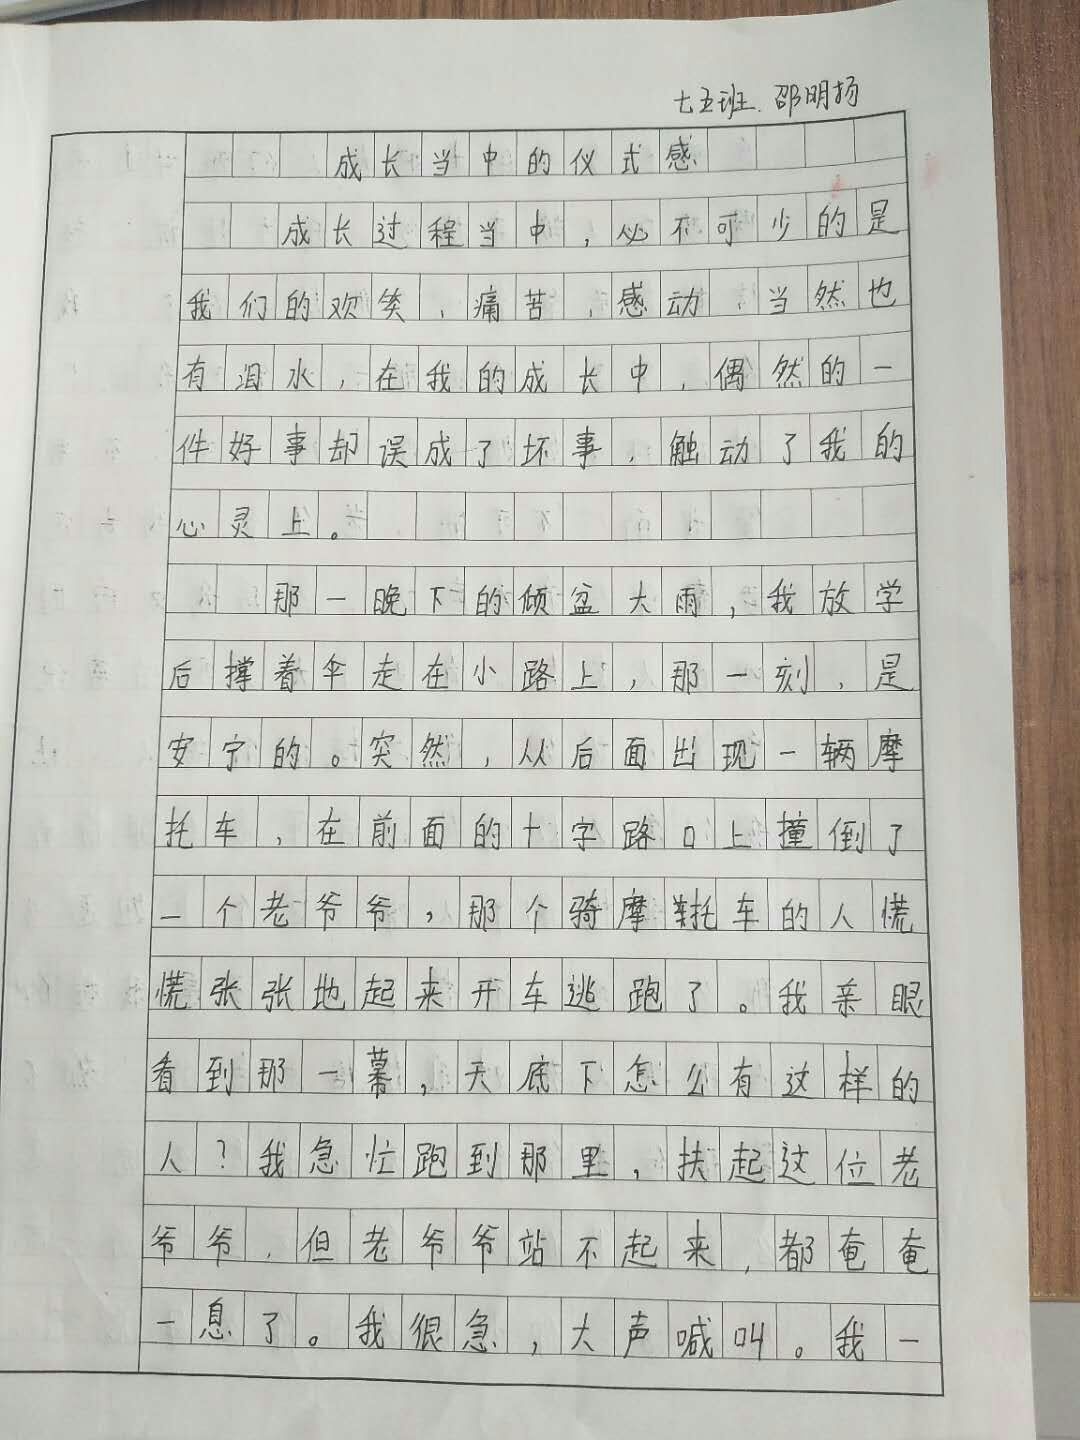 七五班 邵明扬
成长当中的仪式感
成长过程当中，必不可少的是
我们的欢笑，痛苦，感动，当然也
有泪水，在我的成长中，偶然的一
件好事却误成了坏事，触动了我的
心灵上。
那一晚下的倾盆大雨，我放学
后撑着伞走在小路上，那一刻，是
安宁的。突然，从后面出现一辆摩
托车，在前面的十字路口上撞倒了
一个老爷爷，那个骑摩托车的人慌
慌张张地起来开车逃跑了。我亲眼
看到那一幕，天底下怎么有这样的
人？我急忙跑到那里，扶起这位老
爷爷，但老爷爷站不起来，都奄奄
一息了。我很急，大声喊叫。我一